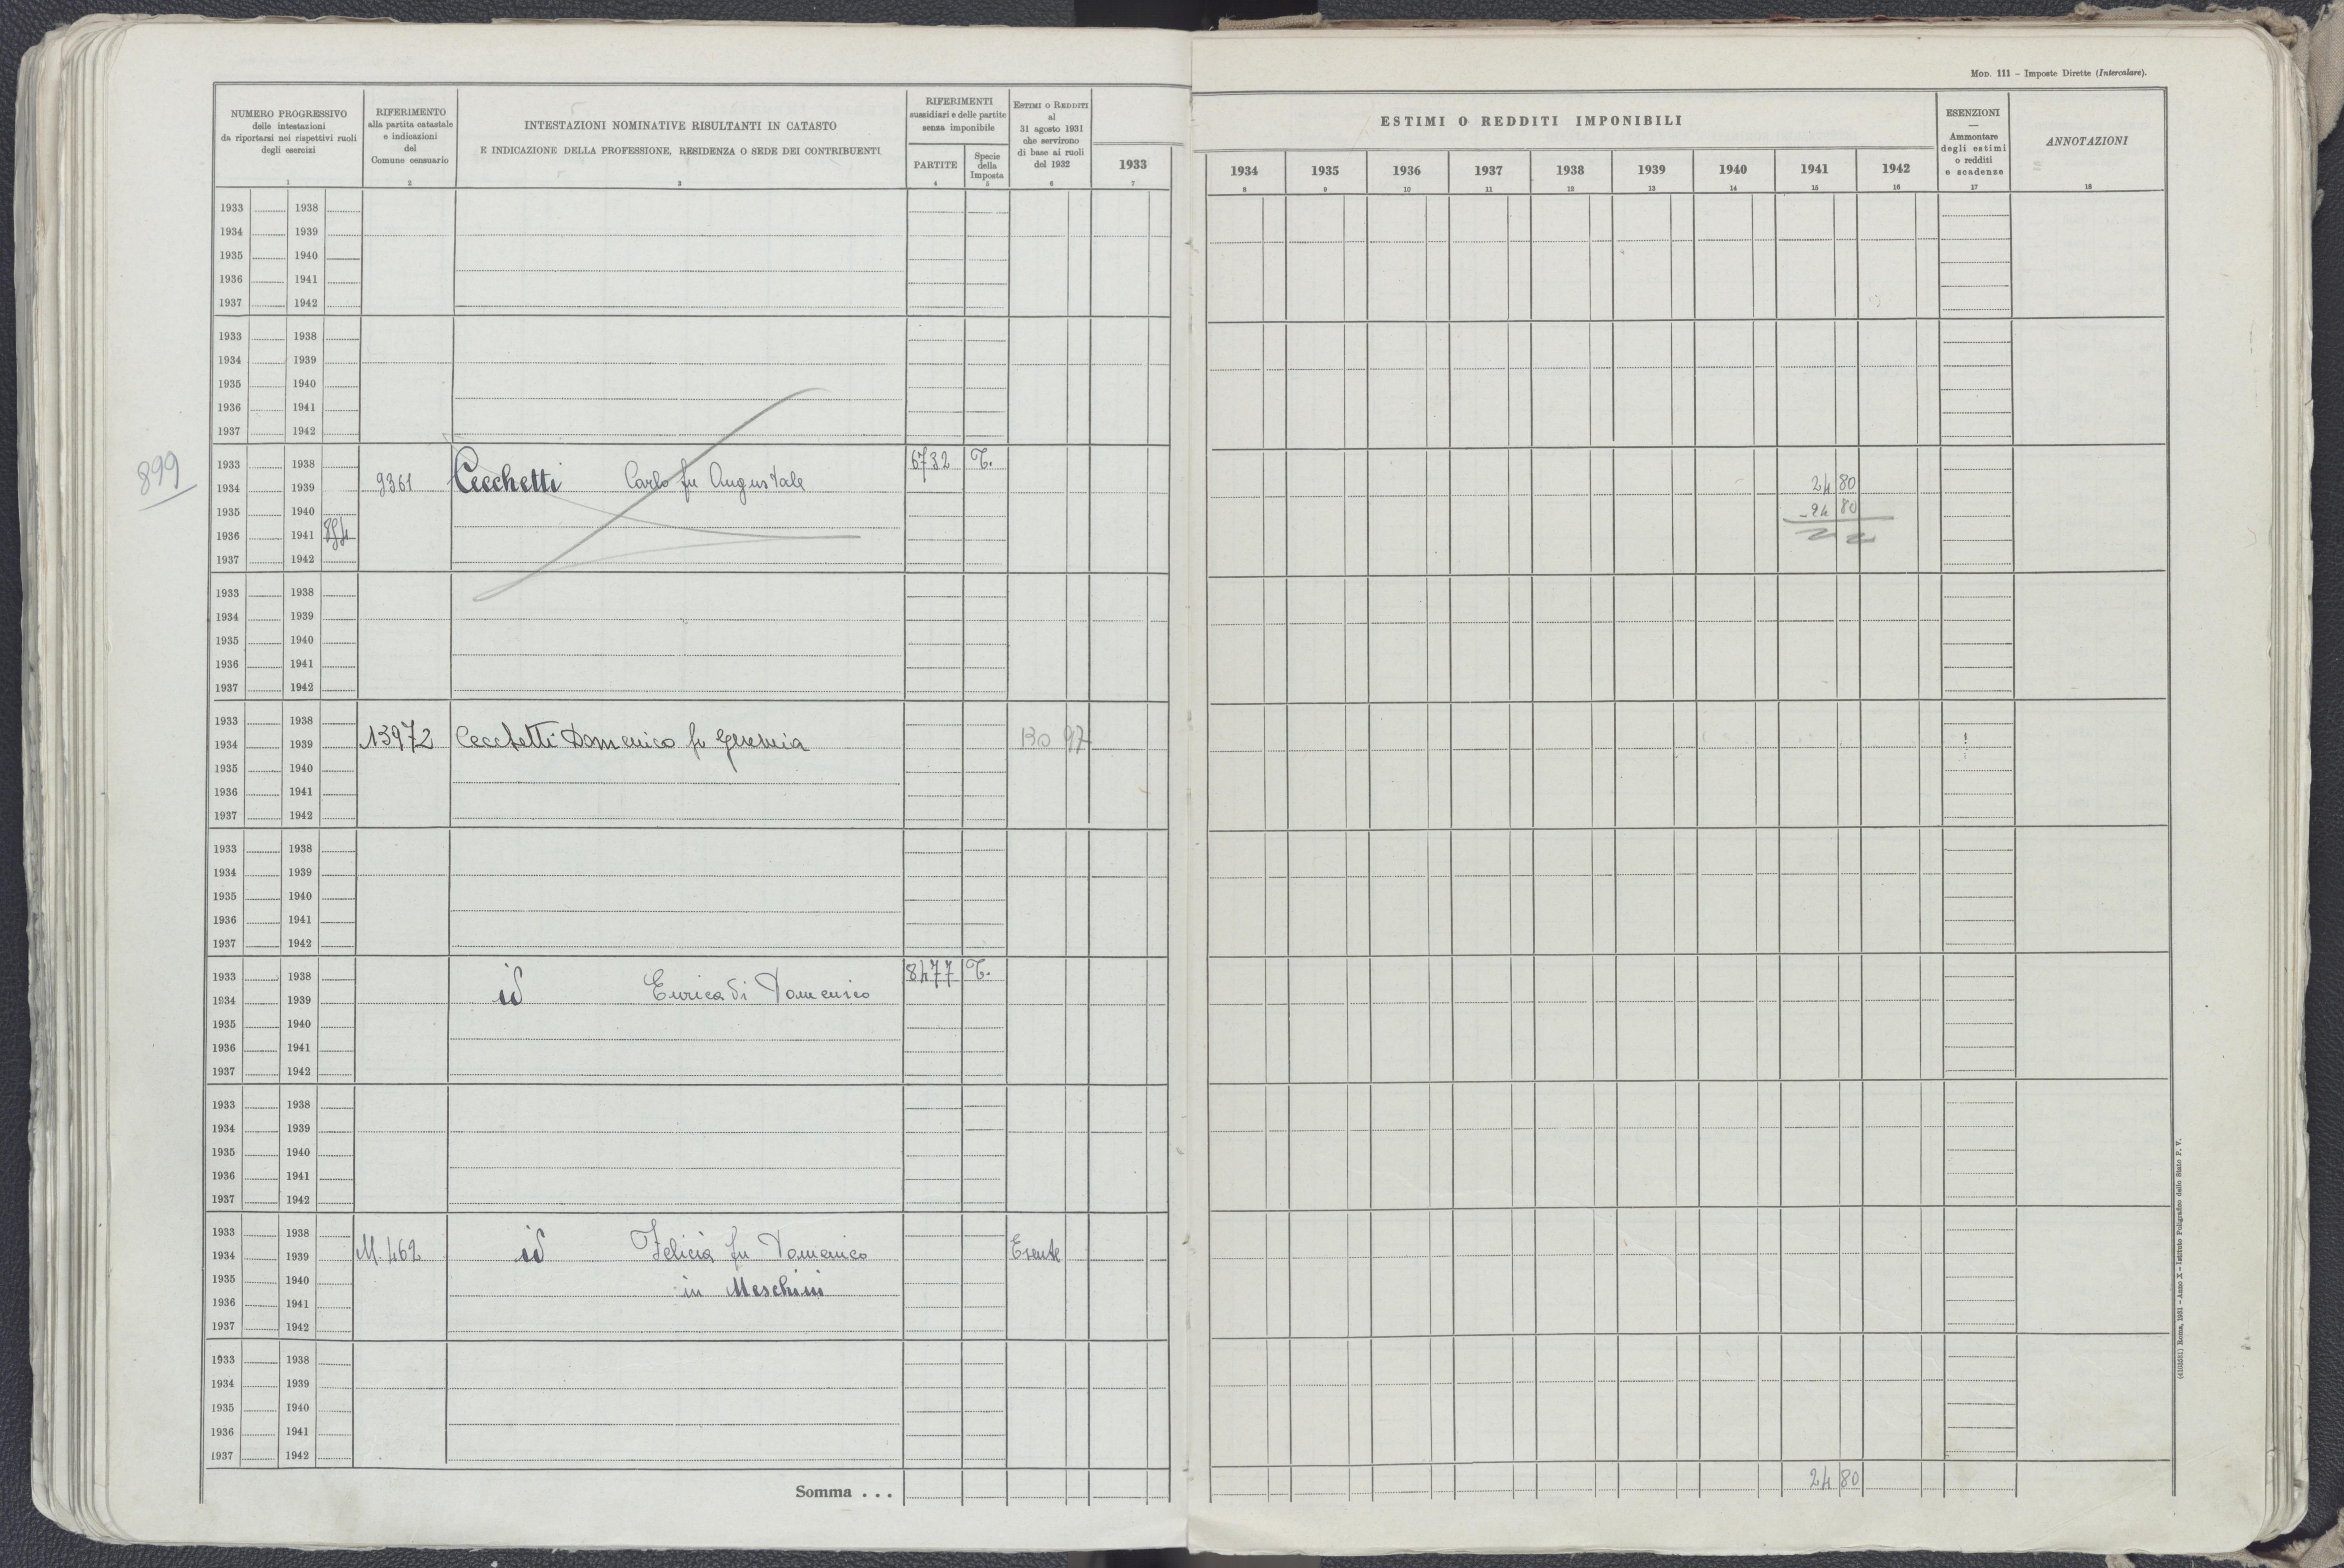 MOD. 111 – Imposte Dirette (Intercalare).
NUMERO PROGRESSIVO
delle intestazioni
da riportarsi nei rispettivi ruoli
degli esercizi
1
RIFERIMENTO
alla partita catastale
e indicazioni
del
Comune censuario
2
INTESTAZIONI NOMINATIVE RISULTANTI IN CATASTO
E INDICAZIONE DELLA PROFESSIONE, RESIDENZA O SEDE DEI CONTRIBUENTI
3
RIFERIMENTI
sussidiari e delle partite
senza imponibile
PARTITE
4
Specie
della
Imposta
5
ESTIMI O REDDITI
al
31 agosto 1931
che servirono
di base ai ruoli
del 1932
6
1933
7
ESTIMI O REDDITI IMPONIBILI
1934 1935 1936 1937 1938 1939 1940 1941 1942
8 9 10 11 12 13 14 15 16
ESENZIONI
—
Ammontare
degli estimi
o redditi
e scadenze
17
ANNOTAZIONI
18
1933 1938
1934 1939
1935 1940
1936 1941
1937 1942
1933 1938
1934 1939
1935 1940
1936 1941
1937 1942
899
1933 1938 6732 T.
1934 1939 9361 Cecchetti Carlo fu Augustale 24 80
1935 1940 -24 80
1936 1941 894
1937 1942
1933 1938
1934 1939
1935 1940
1936 1941
1937 1942
1933 1938
1934 1939 13972 Cecchetti Domenico fu Geremia 130 97
1935 1940
1936 1941
1937 1942
1933 1938
1934 1939
1935 1940
1936 1941
1937 1942
1933 1938 8477 T.
1934 1939 id Enrica di Domenico
1935 1940
1936 1941
1937 1942
1933 1938
1934 1939
1935 1940
1936 1941
1937 1942
1933 1938
1934 1939 M. 462 id Felicia fu Domenico Esente
1935 1940 in Meschini
1936 1941
1937 1942
1933 1938
1934 1939
1935 1940
1936 1941
1937 1942
Somma . . . 24 80
(4103581) Roma, 1931 – Anno X – Istituto Poligrafico dello Stato P. V.